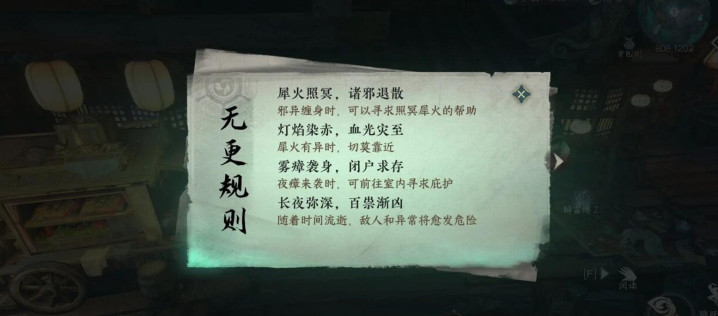 无更规则
犀火照冥，诸邪退散
邪异缠身时，可以寻求照冥犀火的帮助
灯焰染赤，血光灾至
犀火有异时，切莫靠近
雾瘴袭身，闭户求存
夜瘴来袭时，可前往室内寻求庇护
长夜弥深，百祟渐凶
随着时间流逝，敌人和异常将愈发危险
[F]
阅读